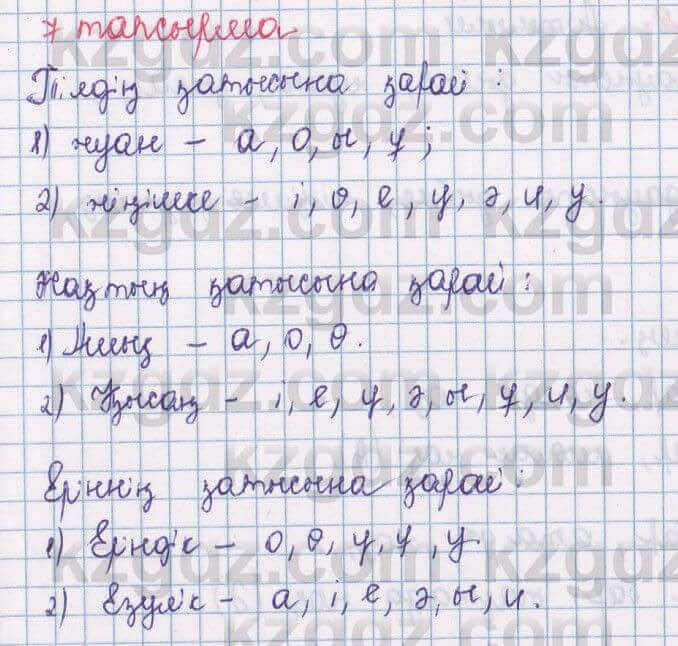 7 тапсырма
Тілдің қатысына қарай :
1) жуан – а, о, ы, ұ;
2) жіңішке – і, ө, е, ү, ә, и, у.
Жақтың қатысына қарай :
1) Ашық – а, о, ө.
2) Қысаң – і, е, ү, ә, ы, ұ, и, у.
Еріннің қатысына қарай :
1) Еріндік – о, ө, ү, ұ, у.
2) Езулік – а, і, е, ә, ы, и.
kzgdz.com